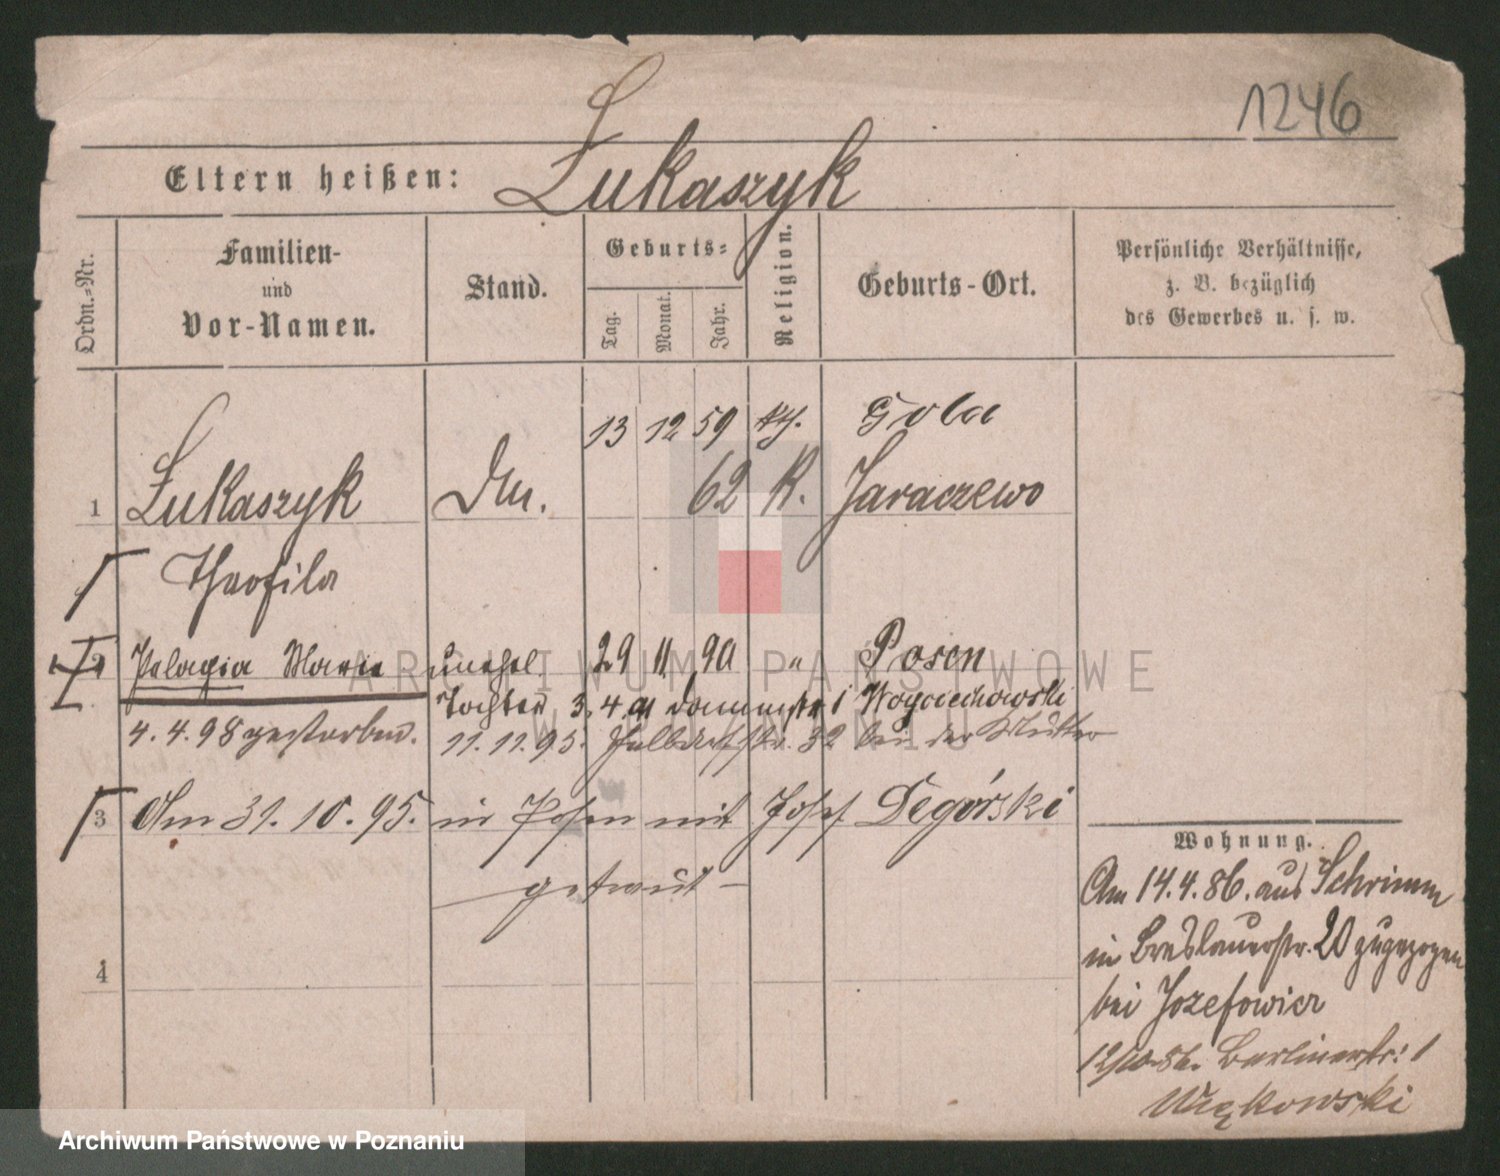 1246
Eltern heißen: Łukaszyk
Ordn.=Nr.
Familien-
und
Vor-Namen.
Stand.
Geburts=
Tag.
Monat.
Jahr.
Religion.
Geburts-Ort.
Persönliche Verhältnisse,
z. B. bezüglich
des Gewerbes u. s. w.
13 12 59 kth. Gola
1 Łukaszyk 62 K. Jaraczewo
Theofila
2 Pelagia Marie unehel. 29 11. 90 " Posen
Tochter 3. 4. 91 Dammstr 1 Woyciechowski
4. 4. 98 gestorben. 11. 11. 95. Halbdorfstr. 32 bei der Mutter
3 Am 31. 10. 95. in Posen mit Josef Degórski
getraut –
4
Wohnung.
Am 14. 4. 86. aus Schrimm
in Breslauerstr. 20 zugezogen
bei Jozefowicz
12/10. 86. Berlinerstr: 1
Więkowski
ARCHIWUM PAŃSTWOWE
W POZNANIU
Archiwum Państwowe w Poznaniu